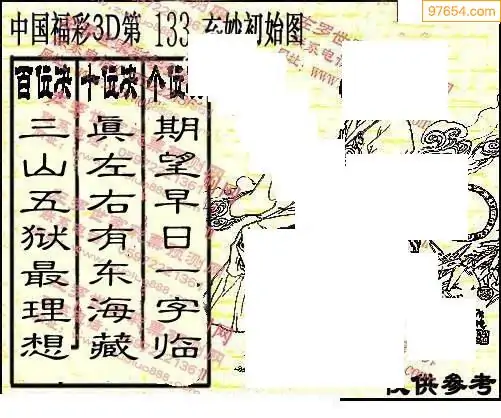 97654.com
中国福彩3D第 133
初始图
百位决
三山五狱最理想
十位决
眞左右有东海藏
个位
期望早日一字临
供参考